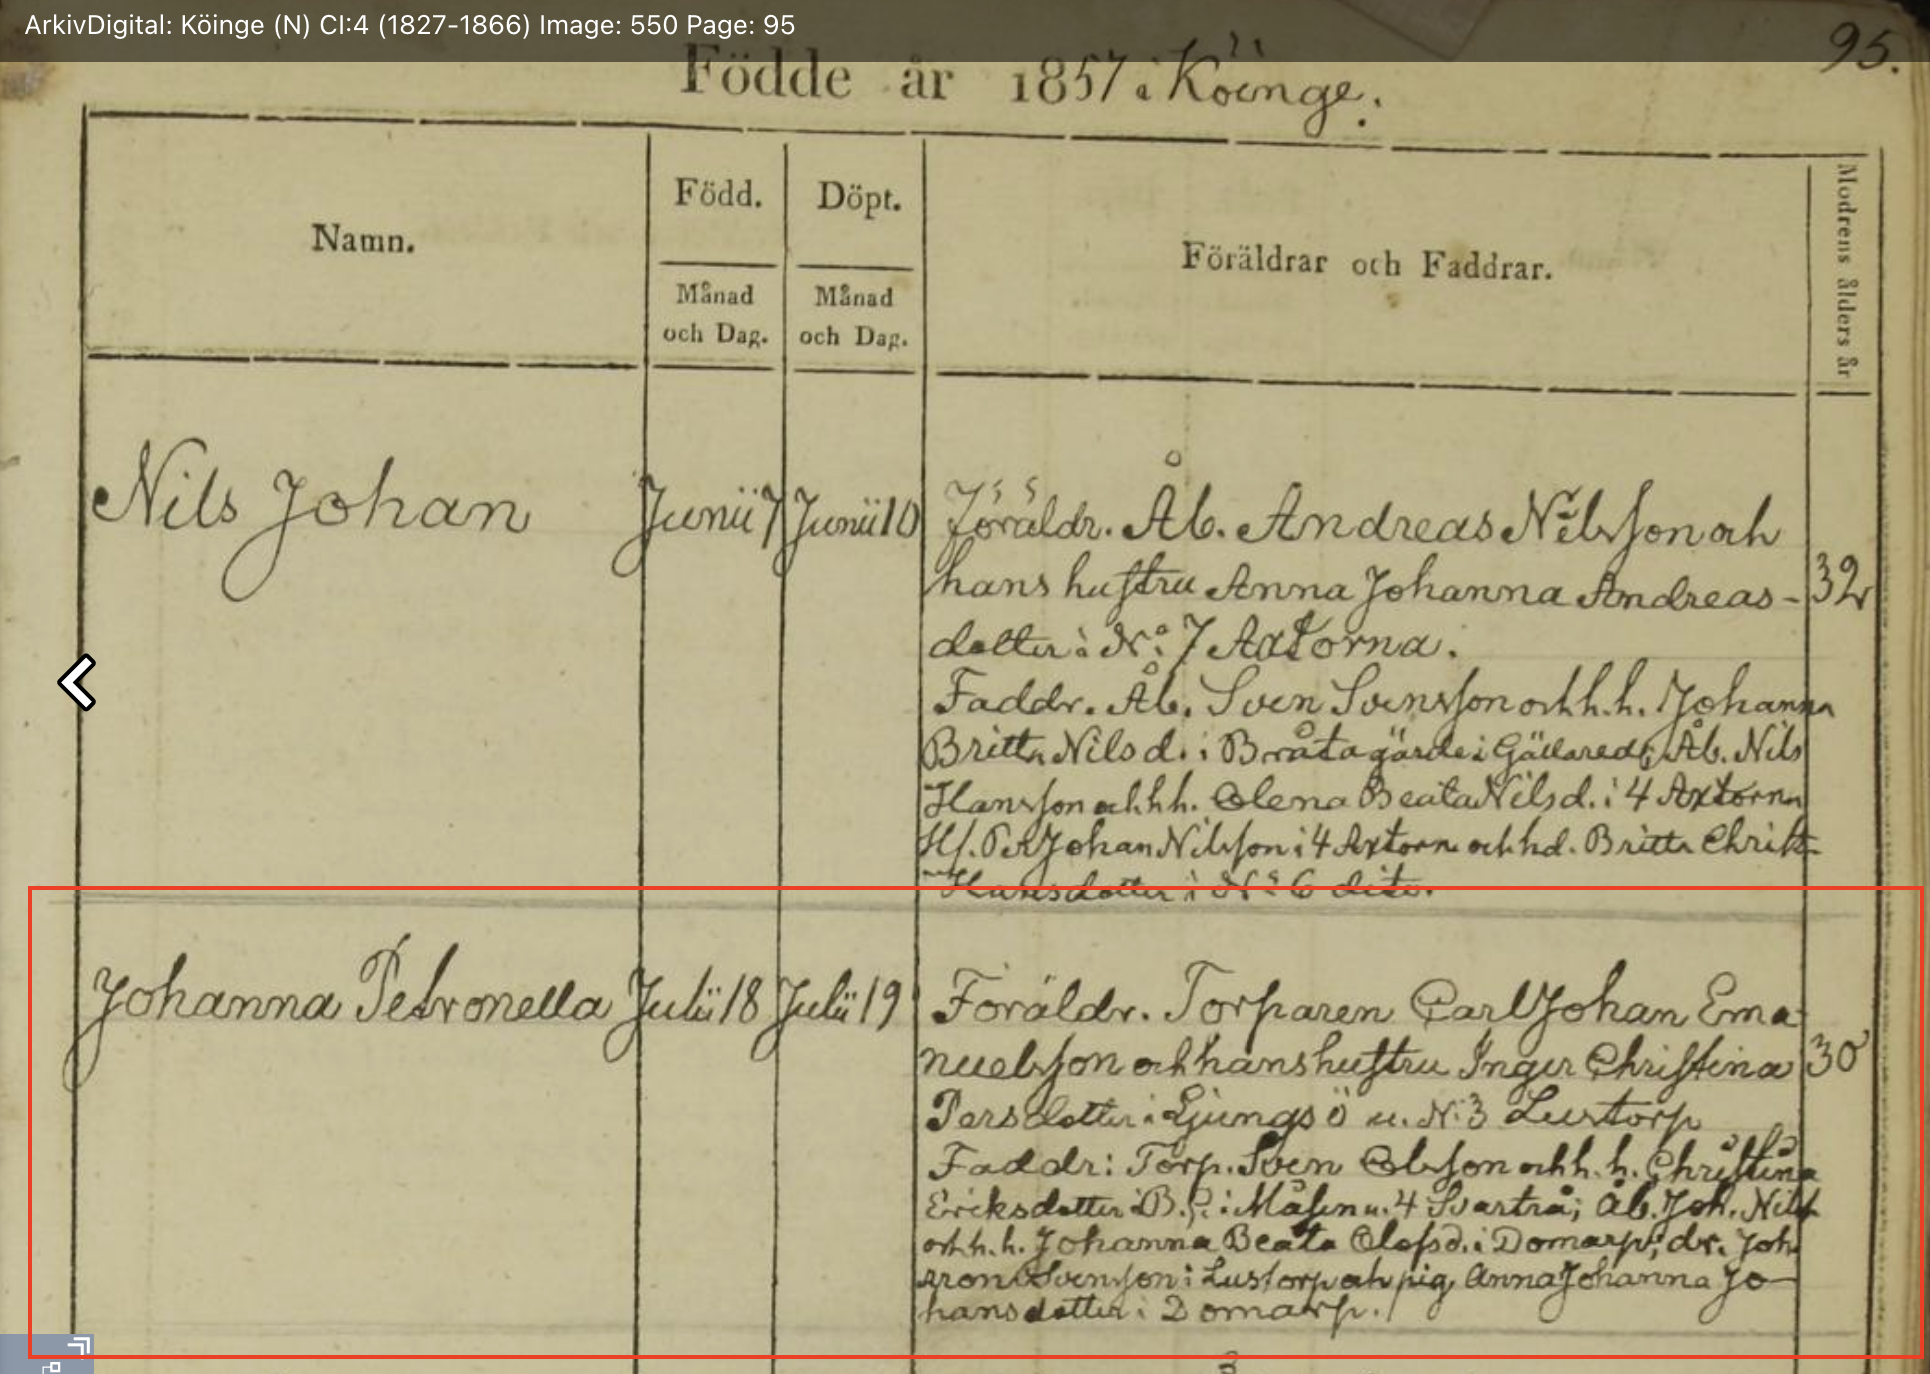 ArkivDigital: Köinge (N) CI:4 (1827-1866) Image: 550 Page: 95
95.
Födde år 1857 i Köinge.
Namn.
Född.
Månad
och Dag.
Döpt.
Månad
och Dag.
Föräldrar och Faddrar.
Modrens ålders år
Nils Johan
Junii 7
Junii 10
Föräldr. Åb. Andreas Nilsson och
hans hustru Anna Johanna Andreas-
dotter i N:o 7 Axtorna.
Faddr. Åb. Sven Svensson och h.h. Johanna
Britta Nilsd. i Bråtagärde i Gällared; Åb. Nils
Hansson och h.h. Olena Beata Nilsd. i 4 Axtorna
Johan Nilsson i 4 Axtorn och hd. Britta Christ.
Hansdotter i N:o 6 dito.
32
Johanna Petronella
Julii 18
Julii 19
Föräldr. Torparen Carl Johan Ema-
nuelsson och hans hustru Inger Christina
Persdotter i Ljungsö u. N:3 Lustorp
Faddr: Torp. Sven Olsson och h.h. Christina
Ericksdotter i Måsen u. 4 Svartrå; Åb. Joh. Nilss
och h.h. Johanna Beata Olofsd. i Domarp; dr. Joh
Svensson i Lustorp och pig. Anna Johanna Jo-
hansdotter i Domarp.
30